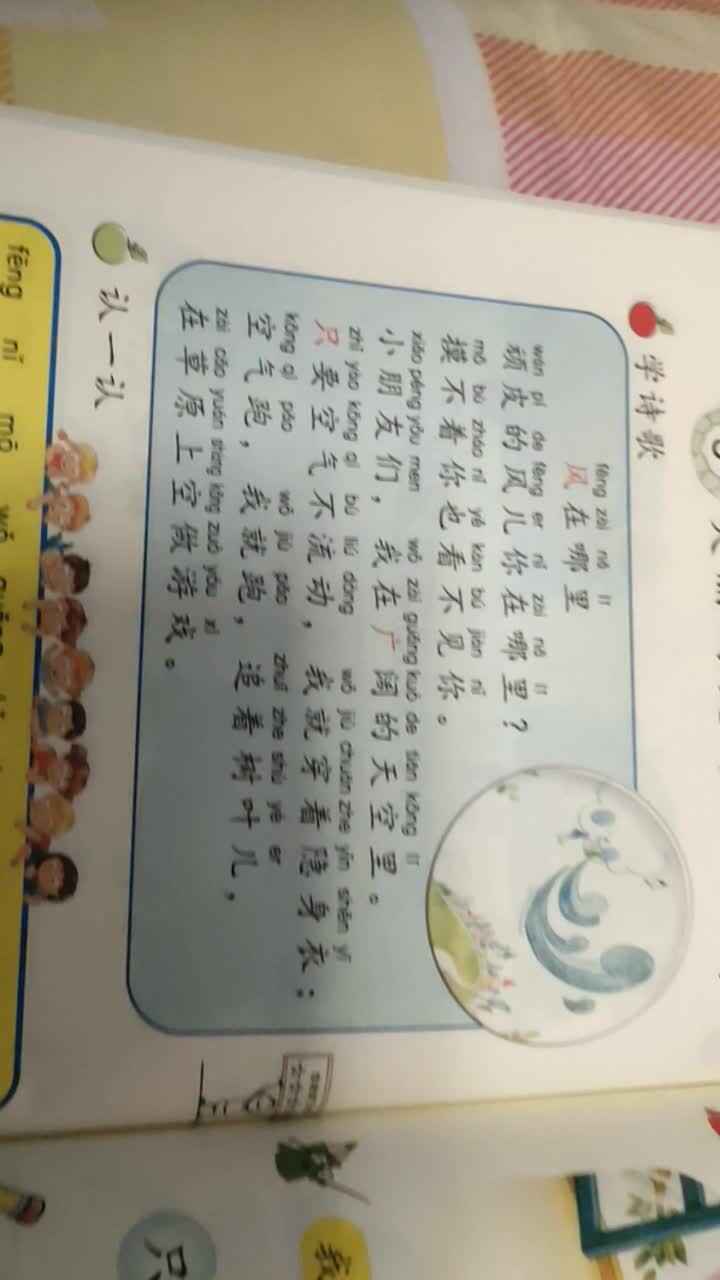 学诗歌
fēng zài nǎ lǐ
风在哪里
wán pí de fēng er nǐ zài nǎ lǐ
顽皮的风儿你在哪里？
mō bù zháo nǐ yě kàn bú jiàn nǐ
摸不着你也看不见你。
xiǎo péng yǒu men wǒ zài guǎng kuò de tiān kōng lǐ
小朋友们，我在广阔的天空里。
zhǐ yào kōng qì bù liú dòng wǒ jiù chuān zhe yǐn shēn yī
只要空气不流动，我就穿着隐身衣：
kōng qì pǎo wǒ jiù pǎo zhuī zhe shù yè er
空气跑，我就跑，追着树叶儿，
zài cǎo yuán shàng kōng zuò yóu xì
在草原上空做游戏。
认一认
fēng nǐ mō wǒ
我
只